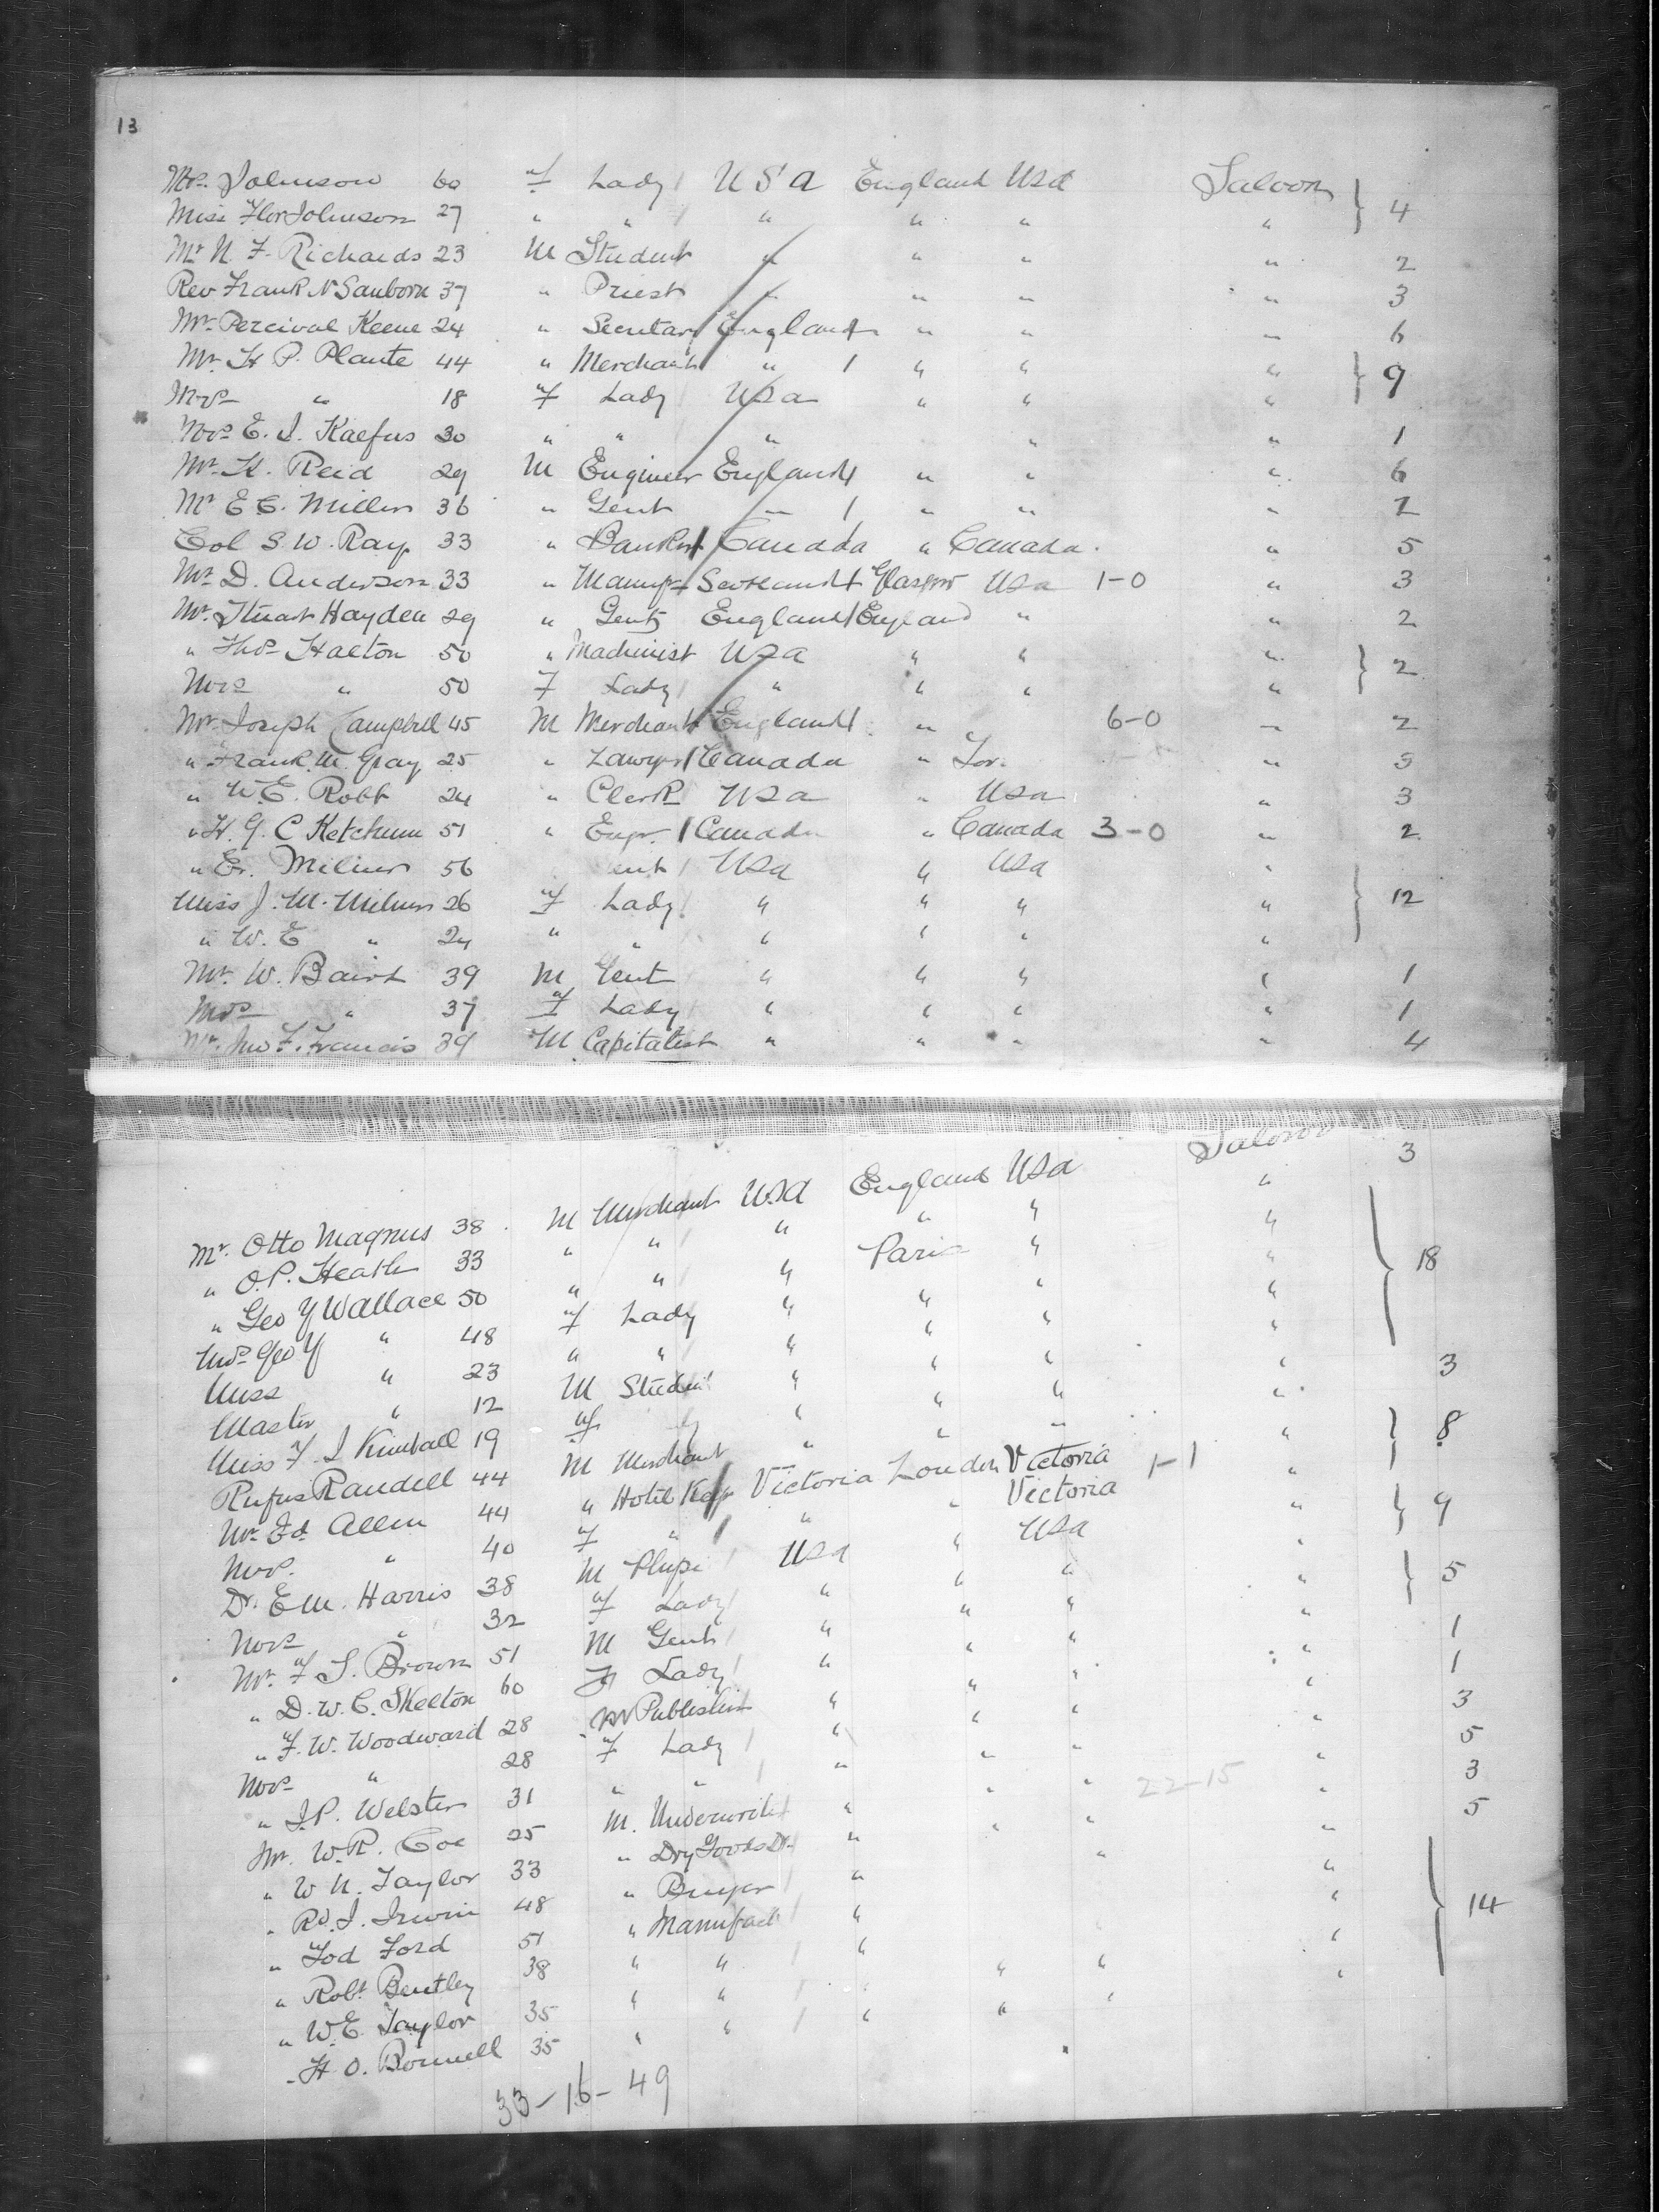 13
Mrs. Johnson 60 f Lady / U S A England Usa Saloon
Miss Flor Johnson 27 " " / " " " " } 4
Mr N. F. Richards 23 M Student " " " " 2
Rev Frank N Sanborn 37 " Priest " " " " 3
Mr Percival Keene 24 " Secretary England " " " 6
Mr. H P. Plante 44 " Merchant " / " " "
Mrs " 18 F Lady Usa " " " } 9
Mrs E. J. Kaefus 30 " " " " " 1
Mr H. Reid 29 M Engineer England " " " 6
Mr E C. Miller 36 " Gent " / " " " 2
Col S. W. Ray 33 " Banker Canada " Canada. " 5
Mr D. Anderson 33 " Manufr Scotland Glasgow Usa 1-0 " 3
Mr. Stuart Hayden 29 " Gent England England " " 2
" Thos Halton 50 " Machinist Usa " " "
Mrs " 50 F Lady / " " " " } 2
Mr Joseph Campbell 45 M Merchant England " " 6-0 " 2
" Frank M Gray 25 " Lawyer Canada " Tor. " 3
" W. E. Robb 24 " Clerk Usa " Usa " 3
" H. G. C Ketchum 51 " Engr. / Canada " Canada 3-0 " 2
" Milner 56 ent / Usa " Usa "
Miss J. M. Milner 26 F Lady / " " " " } 12
" W. E " 24 " " " " " "
Mr. W. Baird 39 M Gent " " " " 1
Mrs " 37 F Lady / " " " " 1
Mr. Jno F. Francis 39 M Capitalist " " " " 4
Saloon 3
Mr. Otto Magnus 38 M Merchant USA England USA "
" O. P. Heath 33 " " / " " " "
" Geo Y Wallace 50 " " / " Paris " "
Mrs Geo Y " 48 F Lady " " " " } 18
Miss " 23 " " " " " "
Master " 12 M Student " " " "
Miss F. I Kimball 19 f y " " " " 3
Rufus Randell 44 M Merchant " " " "
Mr. Ed. Allen 44 " Hotel Kepr Victoria London Victoria 1-1 " } 8
Mrs. " 40 F " / " " Victoria "
Dr. E M. Harris 38 M Phys / USA " USA " } 9
Mrs " 32 F Lady / " " " "
Mr. F S. Brown 51 M Gent / " " " " } 5
" D. W. C. Skelton 60 F Lady / " " " "
" F. W. Woodward 28 M Publisher " " " " 1
Mrs " 28 F Lady / " " " " 1
" J. P. Welster 31 " " / " " " " 3
Mr. W. R. Coe 25 M. Underwriter " " " 22-15 " 5
" W N. Taylor 33 " Dry Goods Dr. " " " " 3
" Rd. J. Irwin 48 " Buyer / " " " 5
" Tod Ford 51 " Manufact / " "
" Robt Bentley 38 " " / " " } 14
" W. E. Taylor 35 " " / " " " "
" H. O. Bonnell 35 " " / " " " "
33-16-49